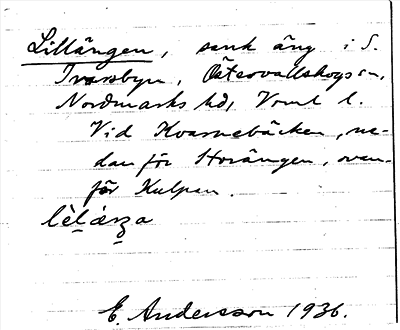 Lillängen, sank äng i S.
Ivarsbyn, Östervallskogs sn,
Nordmarks hd, Vrml l.
Vid Kvarnebäcken, ne-
dan för Storängen, ovan-
för Kulpan.
E. Andersson 1936.